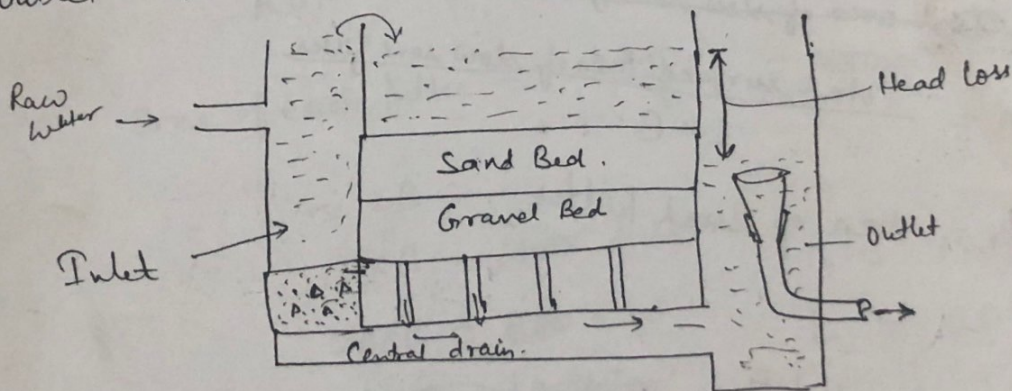 Raw
Water
Head loss
Sand Bed.
Gravel Bed
Outlet
Inlet
Central drain.